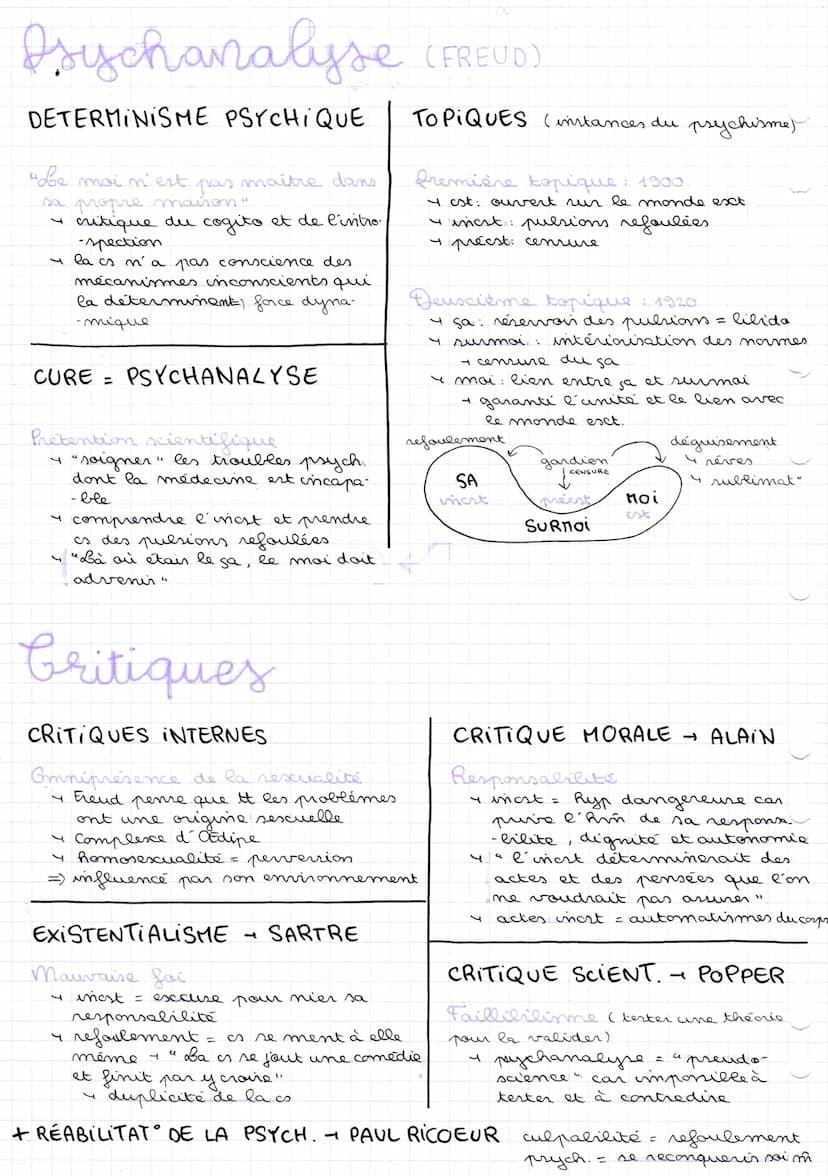 Psychanalyse (FREUD)
DETERMINISME PSYCHIQUE
"Le moi n'est pas maître dans
sa propre maison"
→ critique du cogito et de l'intro-
-spection
→ la cs n'a pas conscience des
mécanismes inconscients qui
la déterminent) force dyna-
-mique
CURE = PSYCHANALYSE
Prétention scientifique
→ "soigner" les troubles psych.
dont la médecine est incapa-
-ble
→ comprendre l'incst et prendre
cs des pulsions refoulées
→ "Là où étais le ça, le moi doit
advenir"
TOPIQUES (instances du psychisme)
Première topique : 1900
→ cst : ouvert sur le monde ext
→ incst : pulsions refoulées
→ précst : censure
Deuxième topique : 1920
→ ça : réservoir des pulsions = libido
→ surmoi : intériorisation des normes
→ censure du ça
→ moi : lien entre ça et surmoi
→ garanti l'unité et le lien avec
le monde ext.
refoulement
gardien
CENSURE
déguisement
→ rêves
→ sublimat°
SA
incst
précst
MOI
cst
SURMOI
Critiques
CRITIQUES INTERNES
Omniprésence de la sexualité
→ Freud pense que tt les problèmes
ont une origine sexuelle
→ Complexe d'Œdipe
→ homosexualité = perversion
=> influencé par son environnement
EXISTENTIALISME → SARTRE
Mauvaise foi
→ incst = excuse pour nier sa
responsabilité
→ refoulement = cs se ment à elle
même → "La cs se jout une comédie
et finit par y croire"
→ duplicité de la cs
CRITIQUE MORALE → ALAIN
Responsabilité
→ incst = hyp dangereuse car
prive l'hm de sa responsa-
-bilite, dignité et autonomie
→ "l'incst déterminerait des
actes et des pensées que l'on
ne voudrait pas assumer"
→ actes incst = automatismes du corps
CRITIQUE SCIENT. → POPPER
Faillibilisme (tester une théorie
pour la valider)
→ psychanalyse = "pseudo-
science" car impossible à
tester et à contredire
+ RÉABILITAT° DE LA PSYCH. → PAUL RICOEUR culpabilité = refoulement
psych. = se reconquérir soi m̂